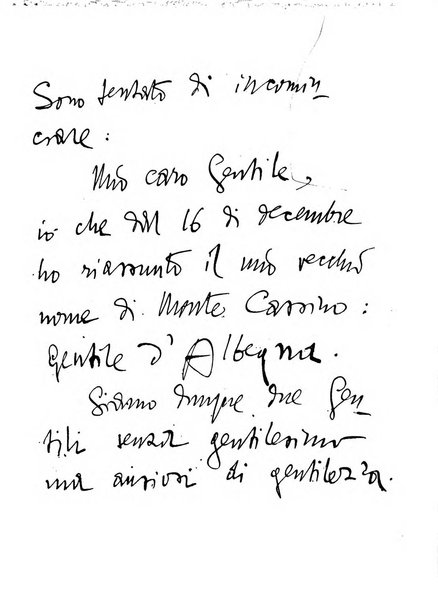 Sono tentato di incomin
ciare:
Mio caro Gentile,
io che dal 16 di decembre
ho riassunto il mio vecchio
nome di Monte Cassino:
Gentile d'Albegna.
Siamo dunque due Gen-
tili senza gentilesimo
ma ansiosi di gentilezza.